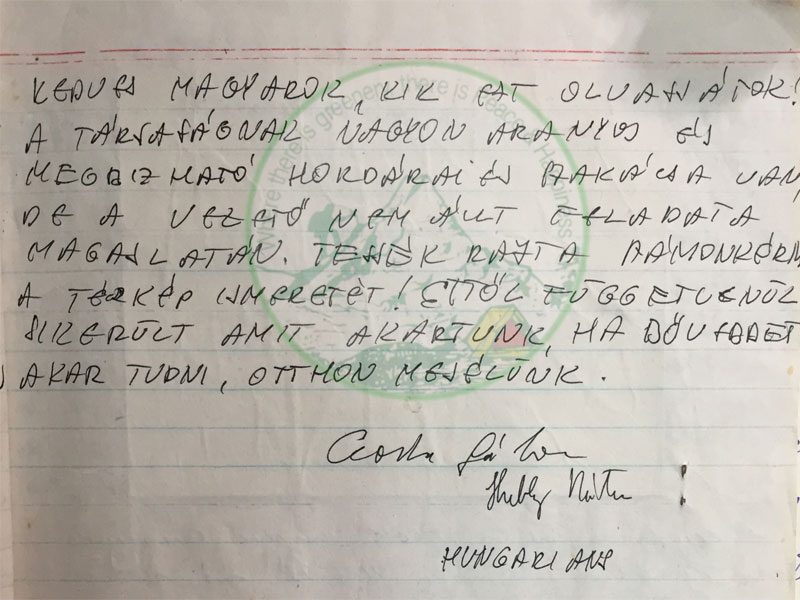 KEDVES MAGYAROK, KIK EZT OLVASSÁTOK!
A TÁRSASÁGNAK NAGYON ARANYOS ÉS
MEGBIZHATÓ HORDÁRAI ÉS SZAKÁCSA VAN,
DE A VEZETŐ NEM ÁLLT FELADATA
MAGASLATÁN. TESSÉK RAJTA SZÁMONKÉRNI
A TÉRKÉP ISMERETÉT! ETTŐL FÜGGETLENÜL
SIKERÜLT AMIT AKARTUNK, HA BŐVEBBET
AKAR TUDNI, OTTHON MESÉLÜNK.
HUNGARIANS
where there is green, there is peace